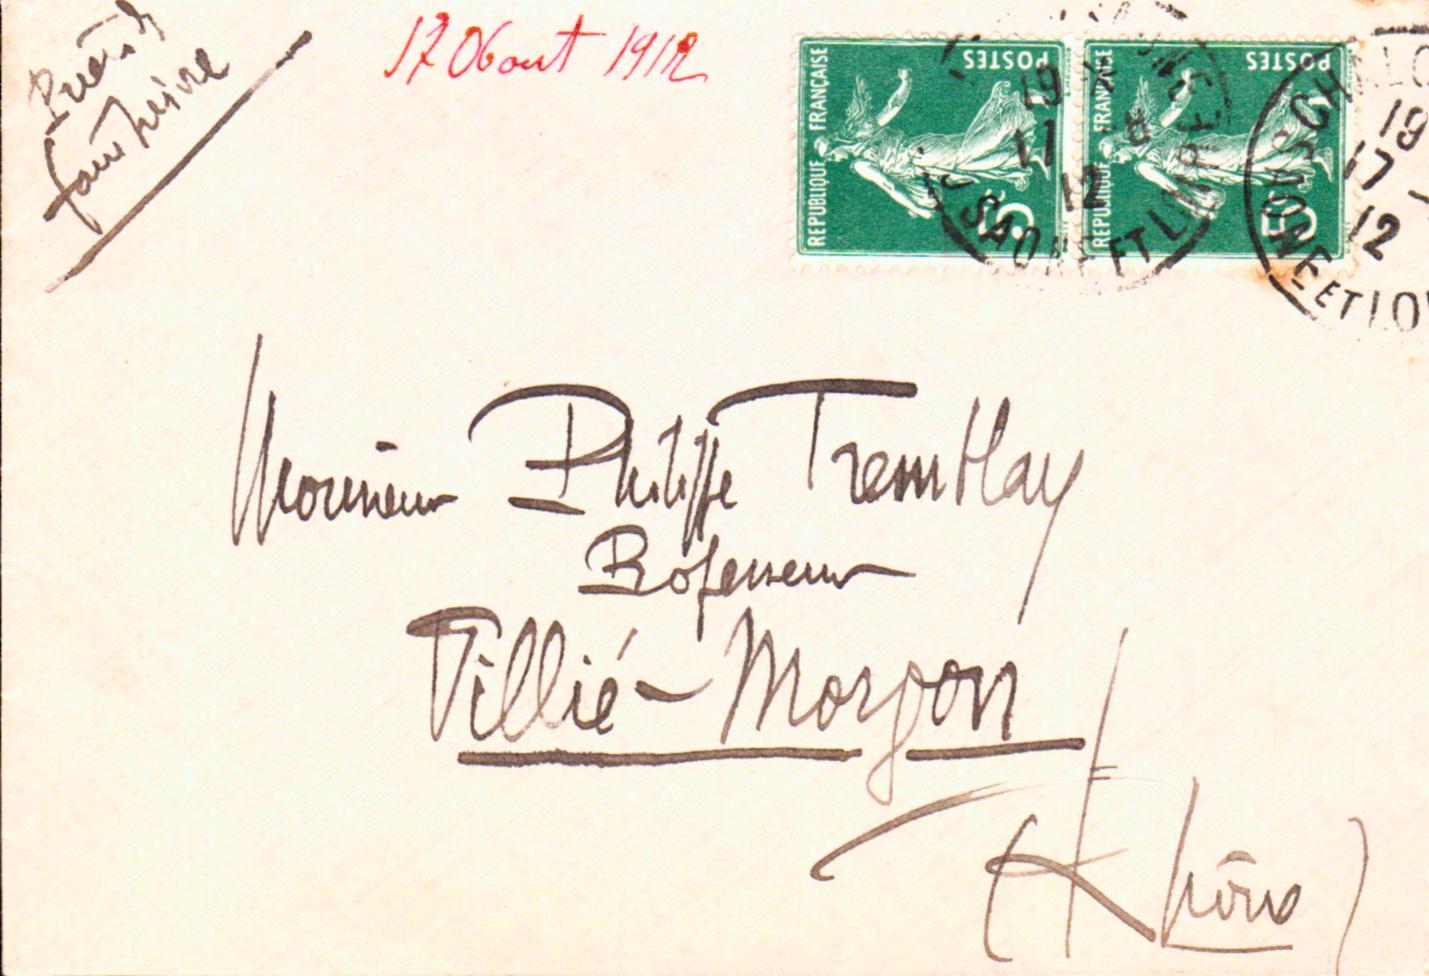 Prière
faire suivre
17 Aout 1912
REPUBLIQUE FRANÇAISE
POSTES
5
REPUBLIQUE FRANÇAISE
POSTES
5
19
17 8
12
SAONE ET LOIRE
CHALO
19
17 -
12
SAONE ET LOI
Monsieur Philippe Tremblay
Professeur
Villié-Morgon
(Rhône)